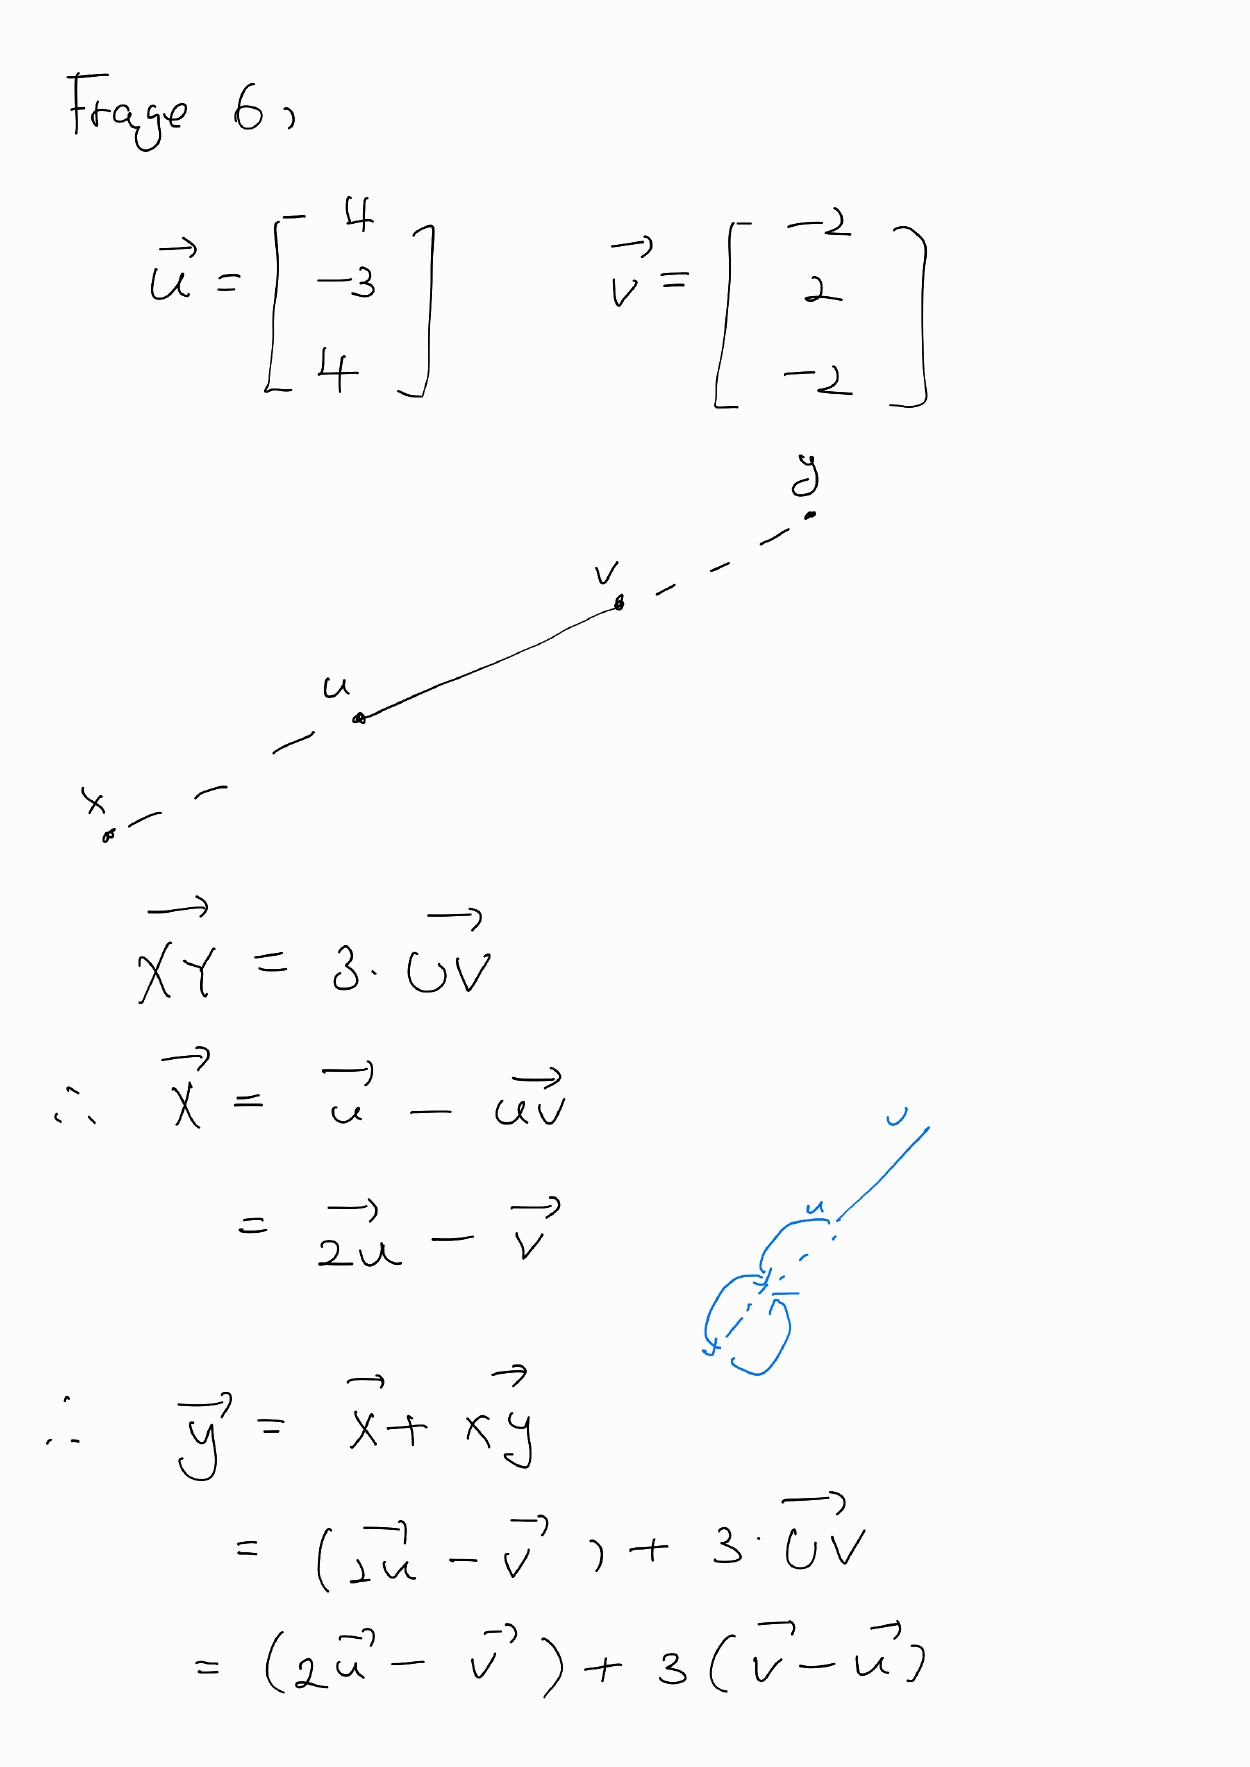 Frage 6,
u⃗ = [ 4 -3 4 ] v⃗ = [ -2 2 -2 ]
y
v
u
x
XY⃗ = 3. UV⃗
∴ X⃗ = u⃗ - uv⃗
= 2u⃗ - v⃗
u
∴ y⃗ = x⃗ + xy⃗
= (2u⃗ - v⃗) + 3·UV⃗
= (2u⃗ - v⃗) + 3(v⃗ - u⃗)